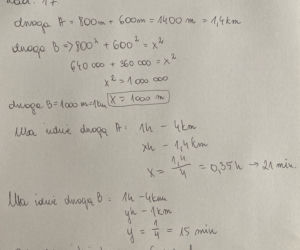 zad. 17
droga A = 800m + 600m = 1400 m = 1,4 km
droga B => 800² + 600² = x²
640 000 + 360 000 = x²
x² = 1 000 000
droga B = 1000 m = 1km x = 1000 m
Ula idzie drogą A: 1h - 4km
xh - 1,4km
x = 1,4/4 = 0,35h → 21 min.
Ula idzie drogą B: 1h - 4km
yh - 1km
y = 1/4 = 15 min